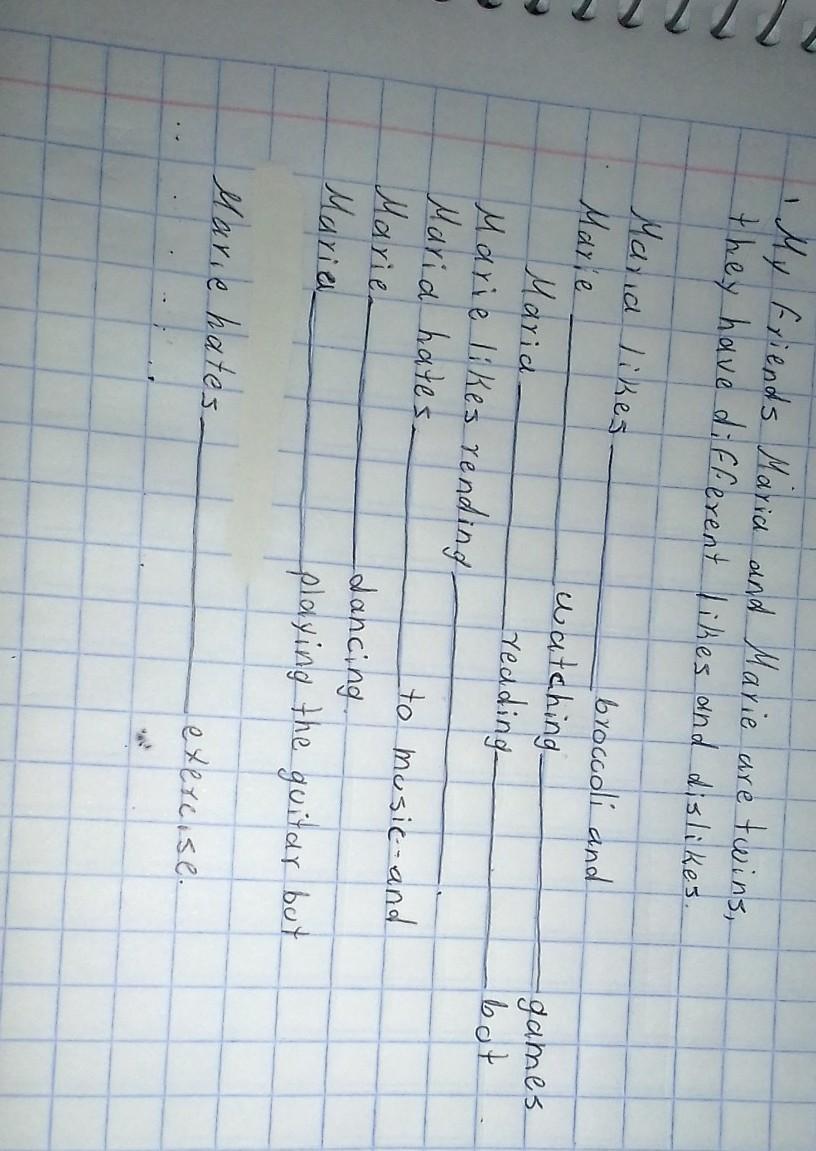 My friends Maria and Marie are twins,
they have different likes and dislikes.
Maria likes ________ broccoli and
Marie ________ watching ________ games
Maria ________ reading ________ but
Marie likes rending ________.
Maria hates ________ to music and
Marie ________ dancing.
Maria ________ playing the guitar but
Marie hates ________ exercise.